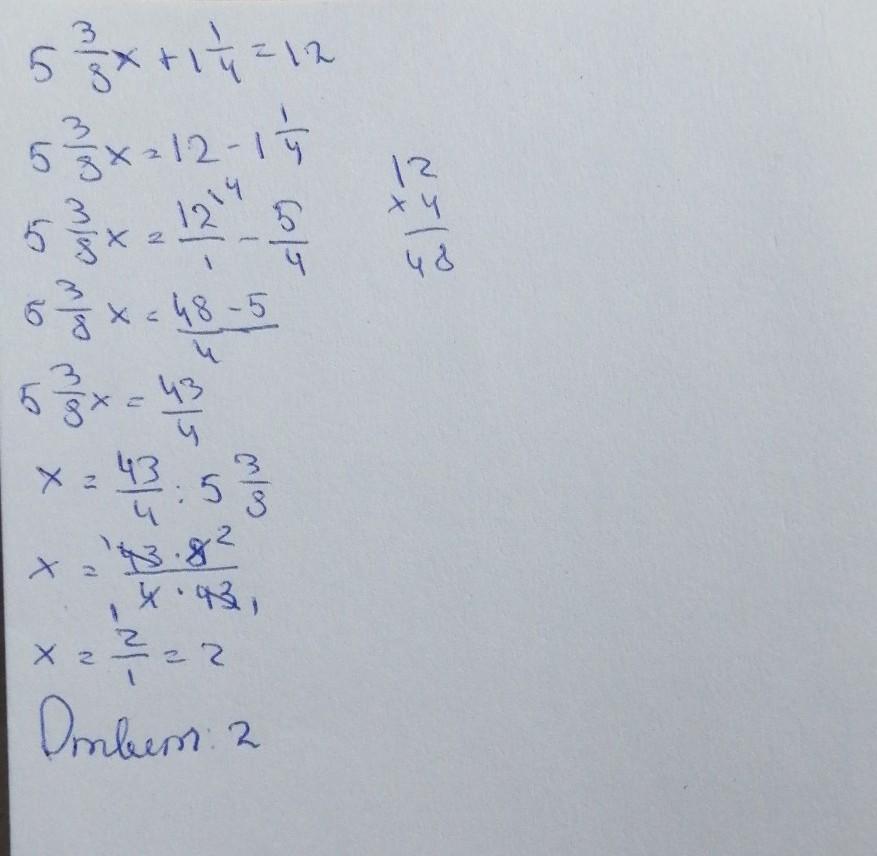 5 3/8 x + 1 1/4 = 12
5 3/8 x = 12 - 1 1/4
5 3/8 x = 12/1 ^(·4) - 5/4
12
× 4
48
5 3/8 x = (48 - 5)/4
5 3/8 x = 43/4
x = 43/4 : 5 3/8
x = (¹43 · 8²)/(₁4 · 43₁)
x = 2/1 = 2
Ответ: 2